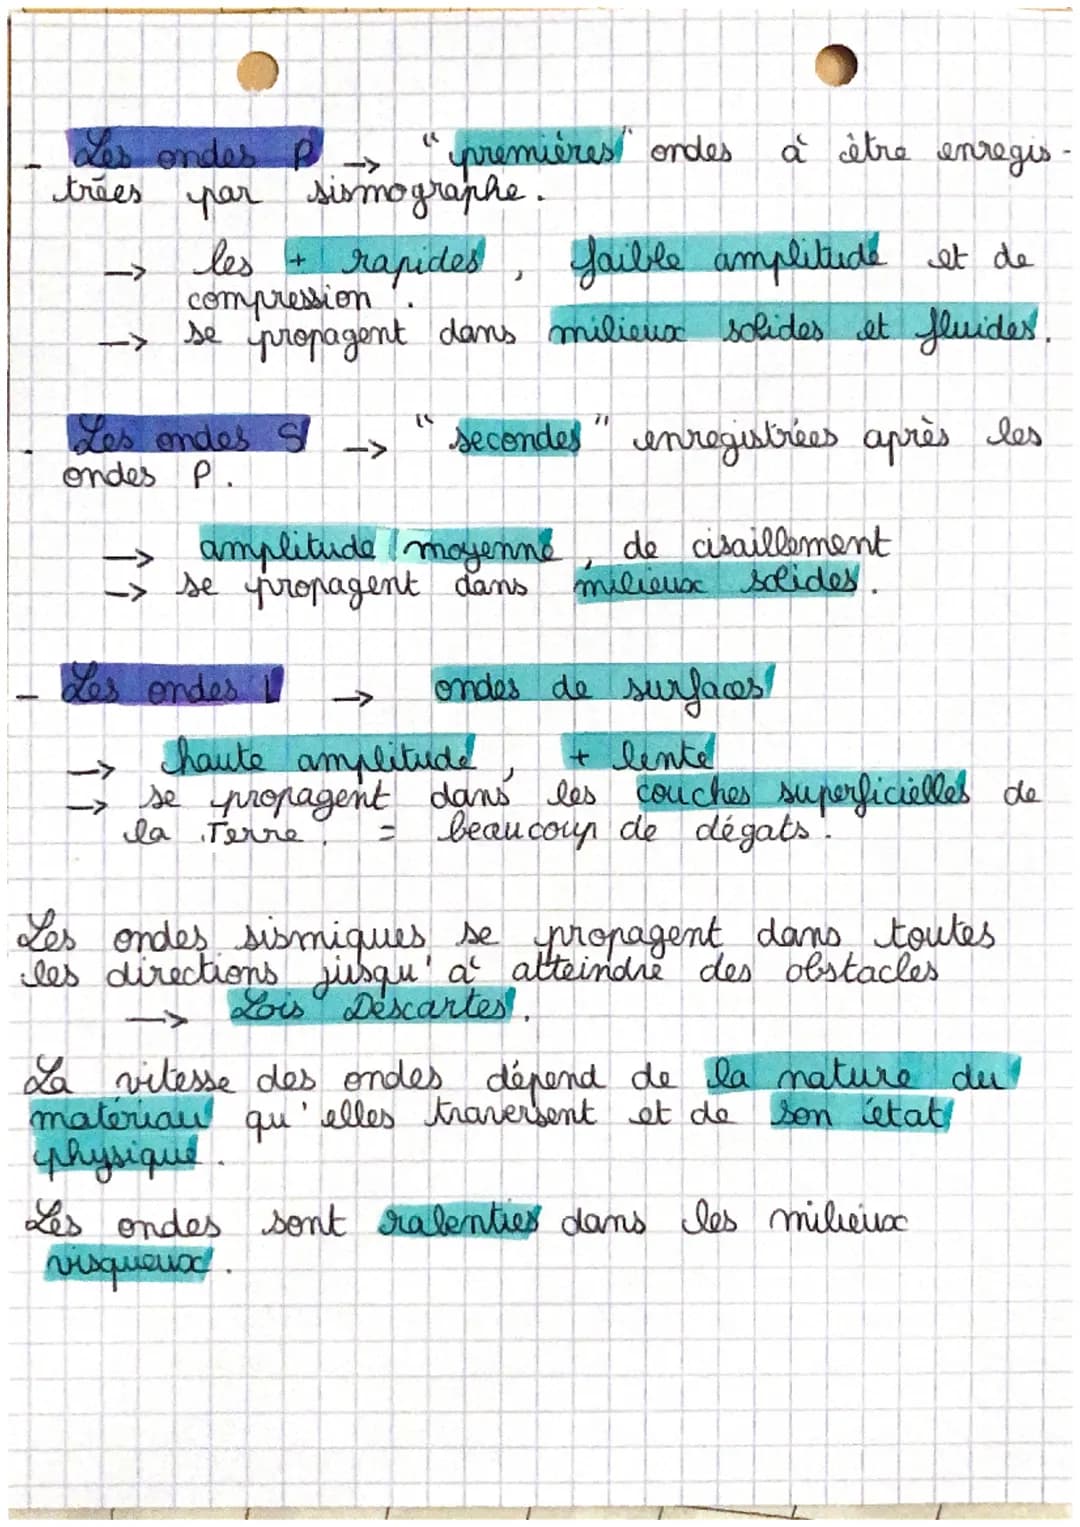 - Les ondes P --> "premières" ondes à être enregis-
trées par sismographe.
--> les + rapides, faible amplitude et de
compression.
--> se propagent dans milieux solides et fluides.
- Les ondes S --> "secondes" enregistrées après les
ondes P.
--> amplitude moyenne, de cisaillement
--> se propagent dans milieux solides.
- Les ondes L --> ondes de surfaces
--> haute amplitude, + lente
--> se propagent dans les couches superficielles de
la Terre. = beaucoup de dégats.
Les ondes sismiques se propagent dans toutes
les directions jusqu'à atteindre des obstacles
--> Lois Descartes.
La vitesse des ondes dépend de la nature du
matériau qu'elles traversent et de son état
physique.
Les ondes sont ralenties dans les milieux
visqueux.